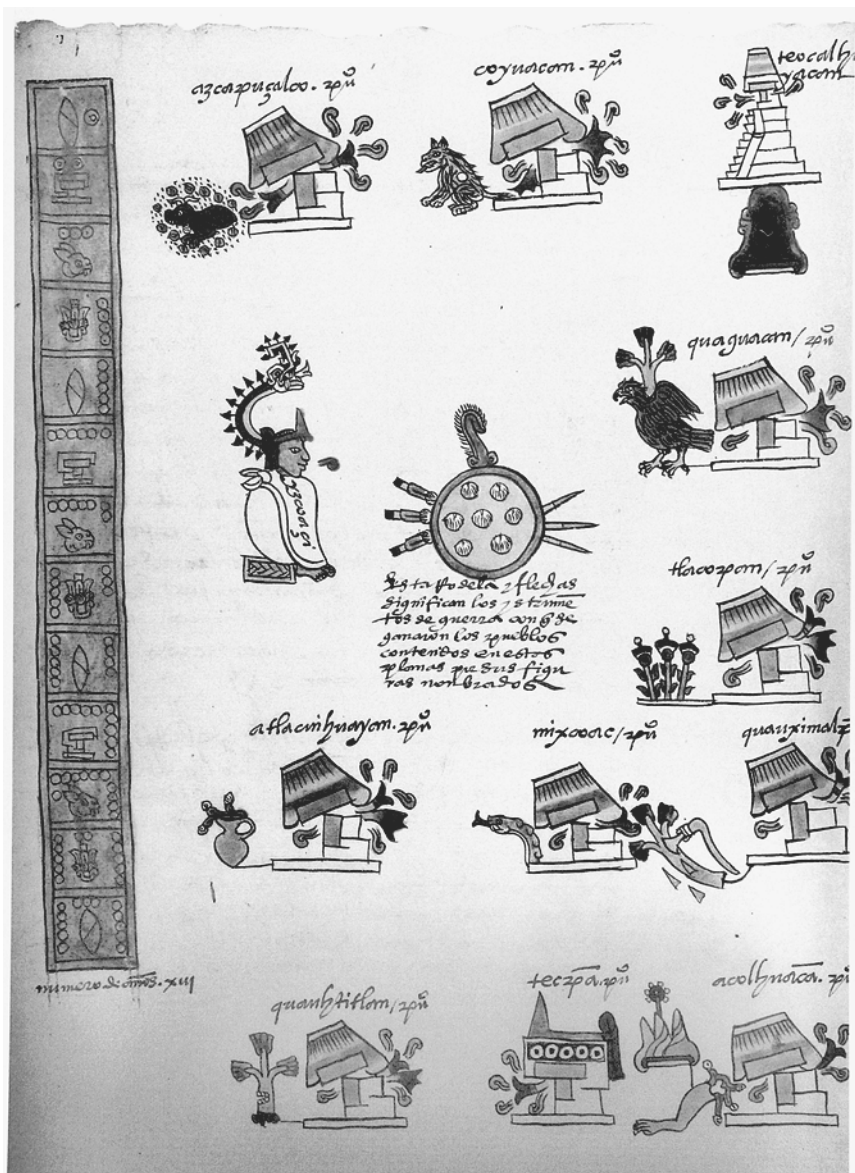 azcapuçalco. pũ
coyuacan. pũ
teocalh
yacan
quaguacan / pũ
yzcoaçi
Esta Rodela y flechas
significan los ystrumẽ
tos de guerra con q̃ se
ganaron los pueblos
contenidos en estas
planas por sus figu
ras nonbrados
tlacopan / pũ
atlacuihuayan. pũ
mixcoac / pũ
quauximalp
numero de años. xiii
quauhtitlan / pũ
tecpã. pũ
acolhuacã. pũ